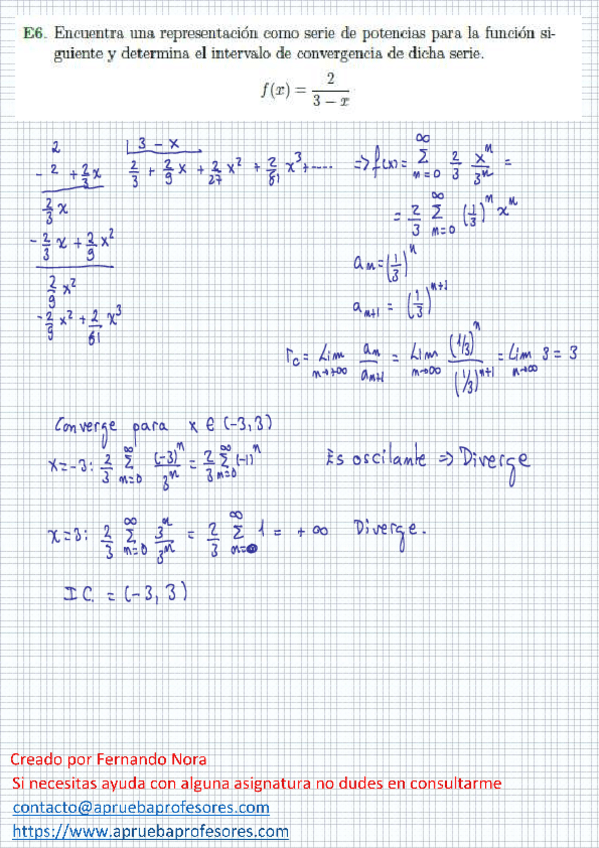 E6. Encuentra una representación como serie de potencias para la función si-
guiente y determina el intervalo de convergencia de dicha serie.
f(x) = 2/(3 − x)
2 | 3 − x
-2 + 2/3 x    2/3 + 2/9 x + 2/27 x² + 2/81 x³ + ..... => f(x) = ∑_{n=0}^{∞} 2/3 xⁿ/3ⁿ =
2/3 x
= 2/3 ∑_{n=0}^{∞} (1/3)ⁿ xⁿ
-2/3 x + 2/9 x²
aₙ = (1/3)ⁿ
2/9 x²
aₙ₊₁ = (1/3)ⁿ⁺¹
-2/9 x² + 2/81 x³
r_c = Lim_{n→+∞} aₙ/aₙ₊₁ = Lim_{n→∞} (1/3)ⁿ/(1/3)ⁿ⁺¹ = Lim_{n→∞} 3 = 3
Converge para x ∈ (-3, 3)
x = -3: 2/3 ∑_{n=0}^{∞} (-3)ⁿ/3ⁿ = 2/3 ∑_{n=0}^{∞} (-1)ⁿ    Es oscilante => Diverge
x = 3: 2/3 ∑_{n=0}^{∞} 3ⁿ/3ⁿ = 2/3 ∑_{n=0}^{∞} 1 = +∞    Diverge.
I C. = (-3, 3)
Creado por Fernando Nora
Si necesitas ayuda con alguna asignatura no dudes en consultarme
contacto@apruebaprofesores.com
https://www.apruebaprofesores.com